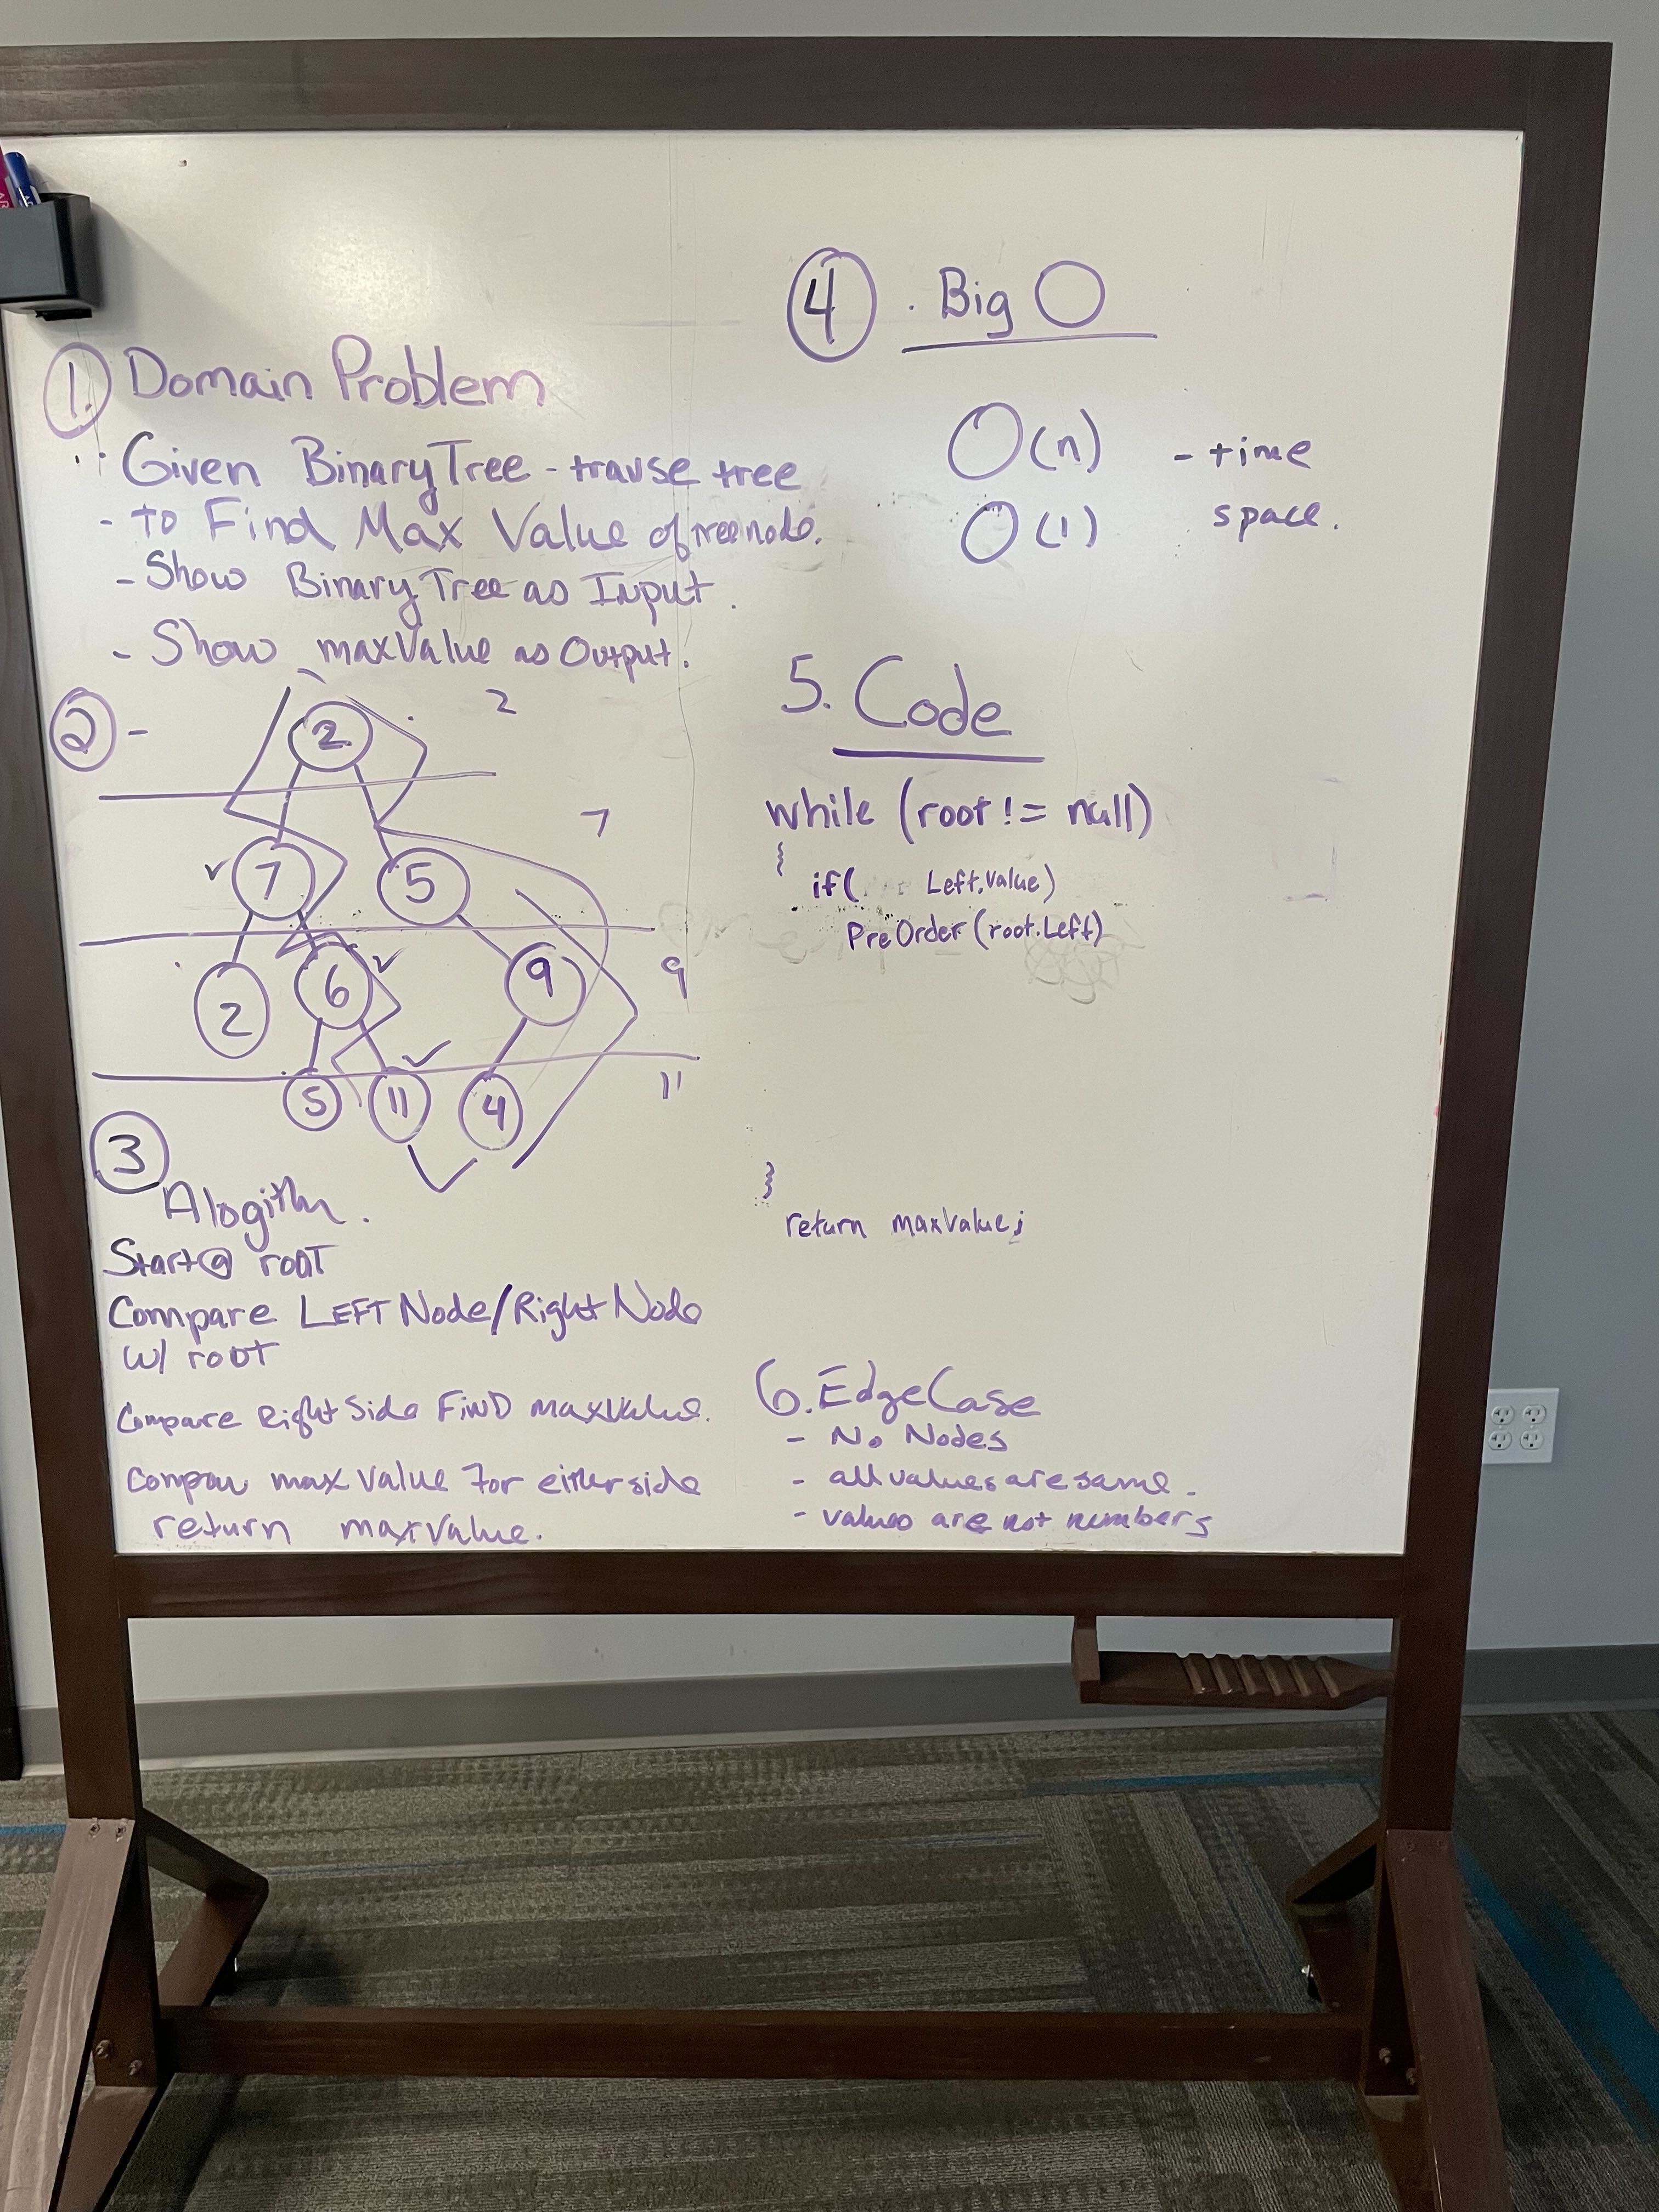 1. Domain Problem
Given BinaryTree - travse tree
- to Find Max Value of treenode.
- Show BinaryTree as Input.
- Show maxValue as Output.
2 -
2 2
7 5 7
2 6 9 9
5 11 4 11
3
Alogithm.
Start@ root
Compare LEFT Node/Right Node
w/ root
Compare Right Side FIND maxValue.
Compar max value for either side
return maxvalue.
4 . Big O
O(n) - time
O(1) space.
5. Code
while (root != null)
{
if( Left.value)
PreOrder (root.Left)
}
return maxValue;
6. EdgeCase
- No Nodes
- all values are same.
- values are not numbers